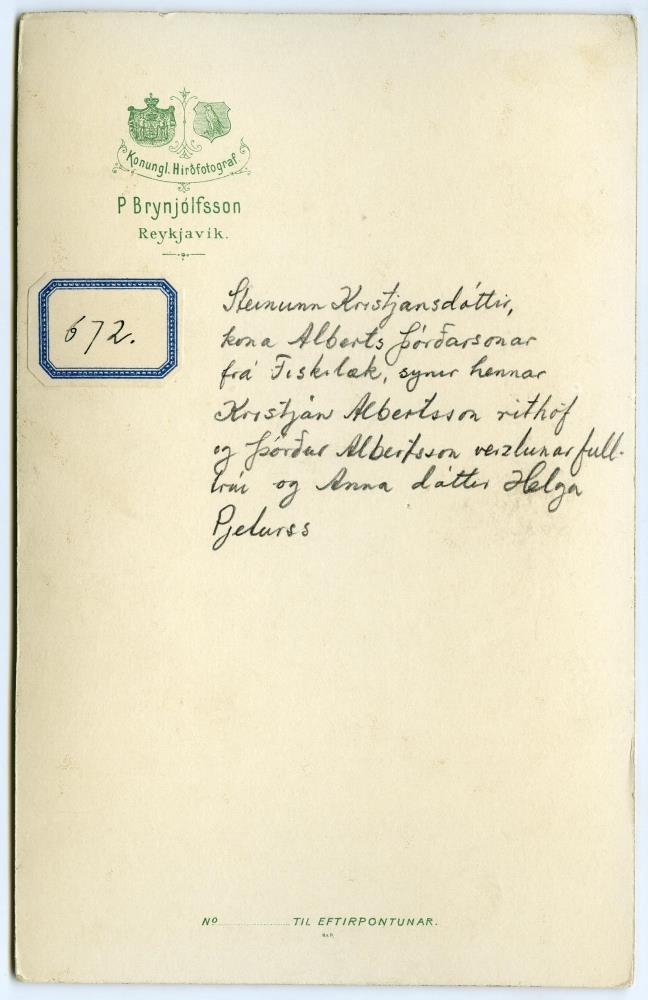 Konungl. Hirðfotograf
P Brynjólfsson
Reykjavík.
672.
Steinunn Kristjansdóttir,
kona Alberts Þórðarsonar
frá Fiskilæk, synir hennar
Kristján Albertsson rithöf
og Þórður Albertsson verzlunarfull-
trúi og Anna dóttir Helga
Pjeturss
No TIL EFTIRPONTUNAR.